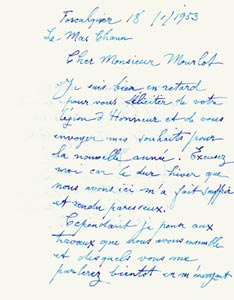 Forcalquier 18/1/1953
Le Mas Chaun
Cher Monsieur Mourlot
Je suis bien en retard
pour vous féliciter de votre
légion d'Honneur et de vous
envoyer mes souhaits pour
la nouvelle année. Excusez
moi car le dur hiver que
nous avons ici m'a fait souffrir
et rendu paresseux.
Cependant je pense aux
travaux que nous avons ensemble
et desquels vous me
parlerez bientôt en m'envoyant